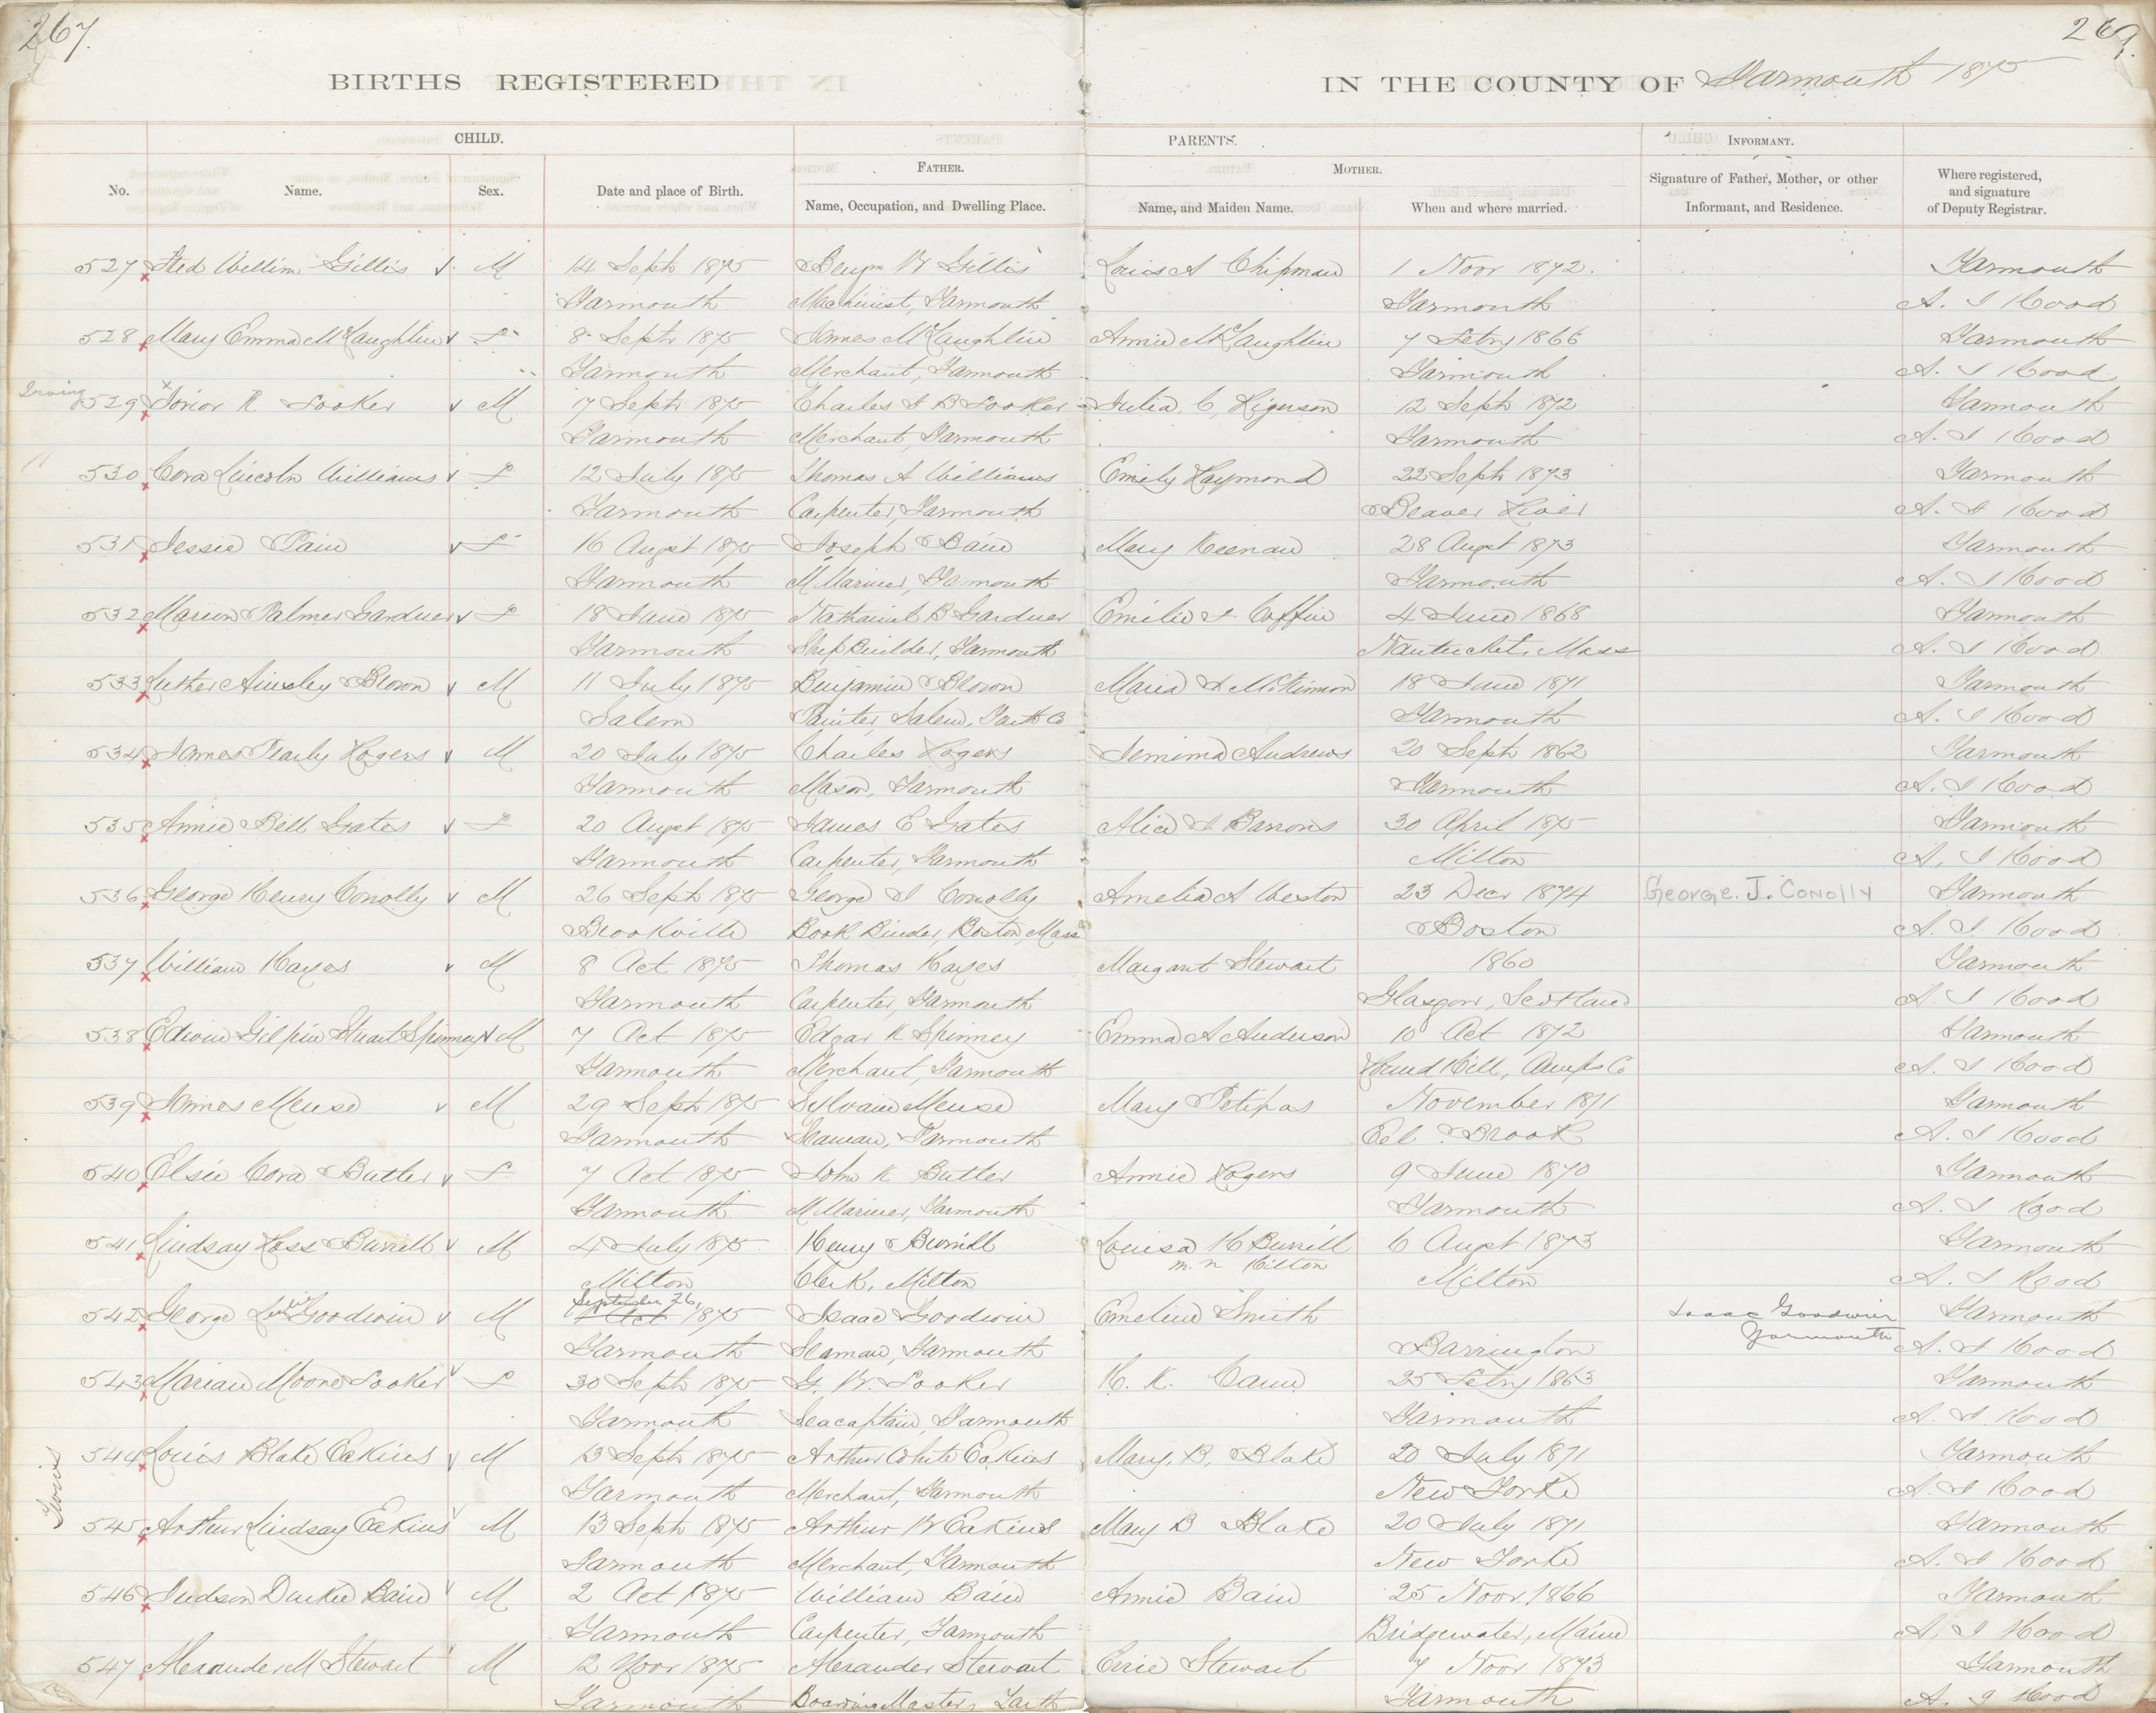 267.
269.
BIRTHS REGISTERED
IN THE COUNTY OF Yarmouth 1875
CHILD.
PARENTS.
INFORMANT.
No.
Name.
Sex.
Date and place of Birth.
FATHER.
Name, Occupation, and Dwelling Place.
MOTHER.
Name, and Maiden Name.
When and where married.
Signature of Father, Mother, or other Informant, and Residence.
Where registered, and signature of Deputy Registrar.
527 Fred Willim Gillis v M 14 Sept 1875 Benjn W Gillis Louis A Chipman 1 Novr 1872. Yarmouth
Yarmouth Machinist, Yarmouth Yarmouth A. J Hood
528 Mary Emma McLaughlin v F 8 Sept 1875 James McLaughlin Annie McLaughlin 7 Febry 1866 Yarmouth
Yarmouth Merchant, Yarmouth Yarmouth A. J Hood
Irving
529 R Looker v M 17 Sept 1875 Charles J B Looker Julia C, 12 Sept 1872 Yarmouth
Yarmouth Merchant, Yarmouth Yarmouth A. J Hood
530 Cora Lincoln Williams v F 12 July 1875 Thomas A Williams Emily Raymond 22 Sept 1873 Yarmouth
Yarmouth Carpenter, Yarmouth Beaver River A. J Hood
531 Jessie Bain v F 16 Augst 1875 Joseph Bain Mary Keenan 28 Augst 1873 Yarmouth
Yarmouth M Mariner, Yarmouth Yarmouth A. J Hood
532 Marion Palmer Gardner v F 18 June 1875 Nathaniel B Gardner Emilie J Coffin 4 June 1868 Yarmouth
Yarmouth Ship Builder, Yarmouth Nantucket, Mass A. J Hood
533 Luther Ainsley Brown v M 11 July 1875 Benjamin Brown Maria J McKinnon 18 June 1871 Yarmouth
Salem Painter, Salem, Yarth Co Yarmouth A. J Hood
534 James Pearly Rogers v M 20 July 1875 Charles Rogers Jemima Andrews 20 Sept 1862 Yarmouth
Yarmouth Mason, Yarmouth Yarmouth A. J Hood
535 Annie Bell Gates v F 20 Augst 1875 James E Gates Alice J. Barrows 30 April 1875 Yarmouth
Yarmouth Carpenter, Yarmouth Milton A. J Hood
536 George Henry Conolly v M 26 Sept 1875 George J Conolly Amelia A Weston 23 Decr 1874 George. J. Conolly Yarmouth
Brookville Book Binder, Boston, Mass Boston A. J. Hood
537 William Hayes v M 8 Oct 1875 Thomas Hayes Margaret Stewart 1860 Yarmouth
Yarmouth Carpenter, Yarmouth Glasgow, Scotland A. J Hood
538 Edwin Gilpin Stuart Spinney v M 7 Oct 1875 Edgar K Spinney Emma A Anderson 10 Oct 1872 Yarmouth
Yarmouth Merchant, Yarmouth Round Hill, Annps Co A. J Hood
539 James Meuse v M 29 Sept 1875 Sylvain Meuse Mary Petipas November 1871 Yarmouth
Yarmouth Seaman, Yarmouth Eel Brook A. J Hood
540 Elsie Cora Butler v F 7 Oct 1875 John K Butler Annie Rogers 9 June 1870 Yarmouth
Yarmouth M Mariner, Yarmouth Yarmouth A. J Hood
541 Lindsay Ross Burrell v M 4 July 1875 Henry Burrill Louisa H Burrill 6 Augst 1873 Yarmouth
m. n Hilton
Milton Clerk, Milton Milton A. J Hood
September 26,
542 George Goodwin v M 7 Oct 1875 Isaac Goodwin Emeline Smith Isaac Goodwin Yarmouth
Yarmouth Seaman, Yarmouth Barrington Yarmouth A. J Hood
543 Marian Moore Looker v F 30 Sept 1875 G. W. Looker H. K. Cann 25 Febry 1863 Yarmouth
Yarmouth Seacaptain, Yarmouth Yarmouth A. J. Hood
Louis
544 Louis Blake Eakins v M 13 Sept 1875 Arthur White Eakins Mary, B, Blake 20 July 1871 Yarmouth
Yarmouth Merchant, Yarmouth New York A. J Hood
545 Arthur Lindsay Eakins v M 13 Sept 1875 Arthur W Eakins Mary B Blake 20 July 1871 Yarmouth
Yarmouth Merchant, Yarmouth New York A. J Hood
546 Judson Durkee Bain v M 2 Oct 1875 William Bain Annie Bain 25 Novr. 1866 Yarmouth
Yarmouth Carpenter, Yarmouth Bridgewater, Maine A. J Hood
547 Alexander M Stewart v M 12 Novr 1875 Alexander Stewart Stewart 7 Novr 1873 Yarmouth
Yarmouth Boarding Master, Yarth Yarmouth A. J Hood